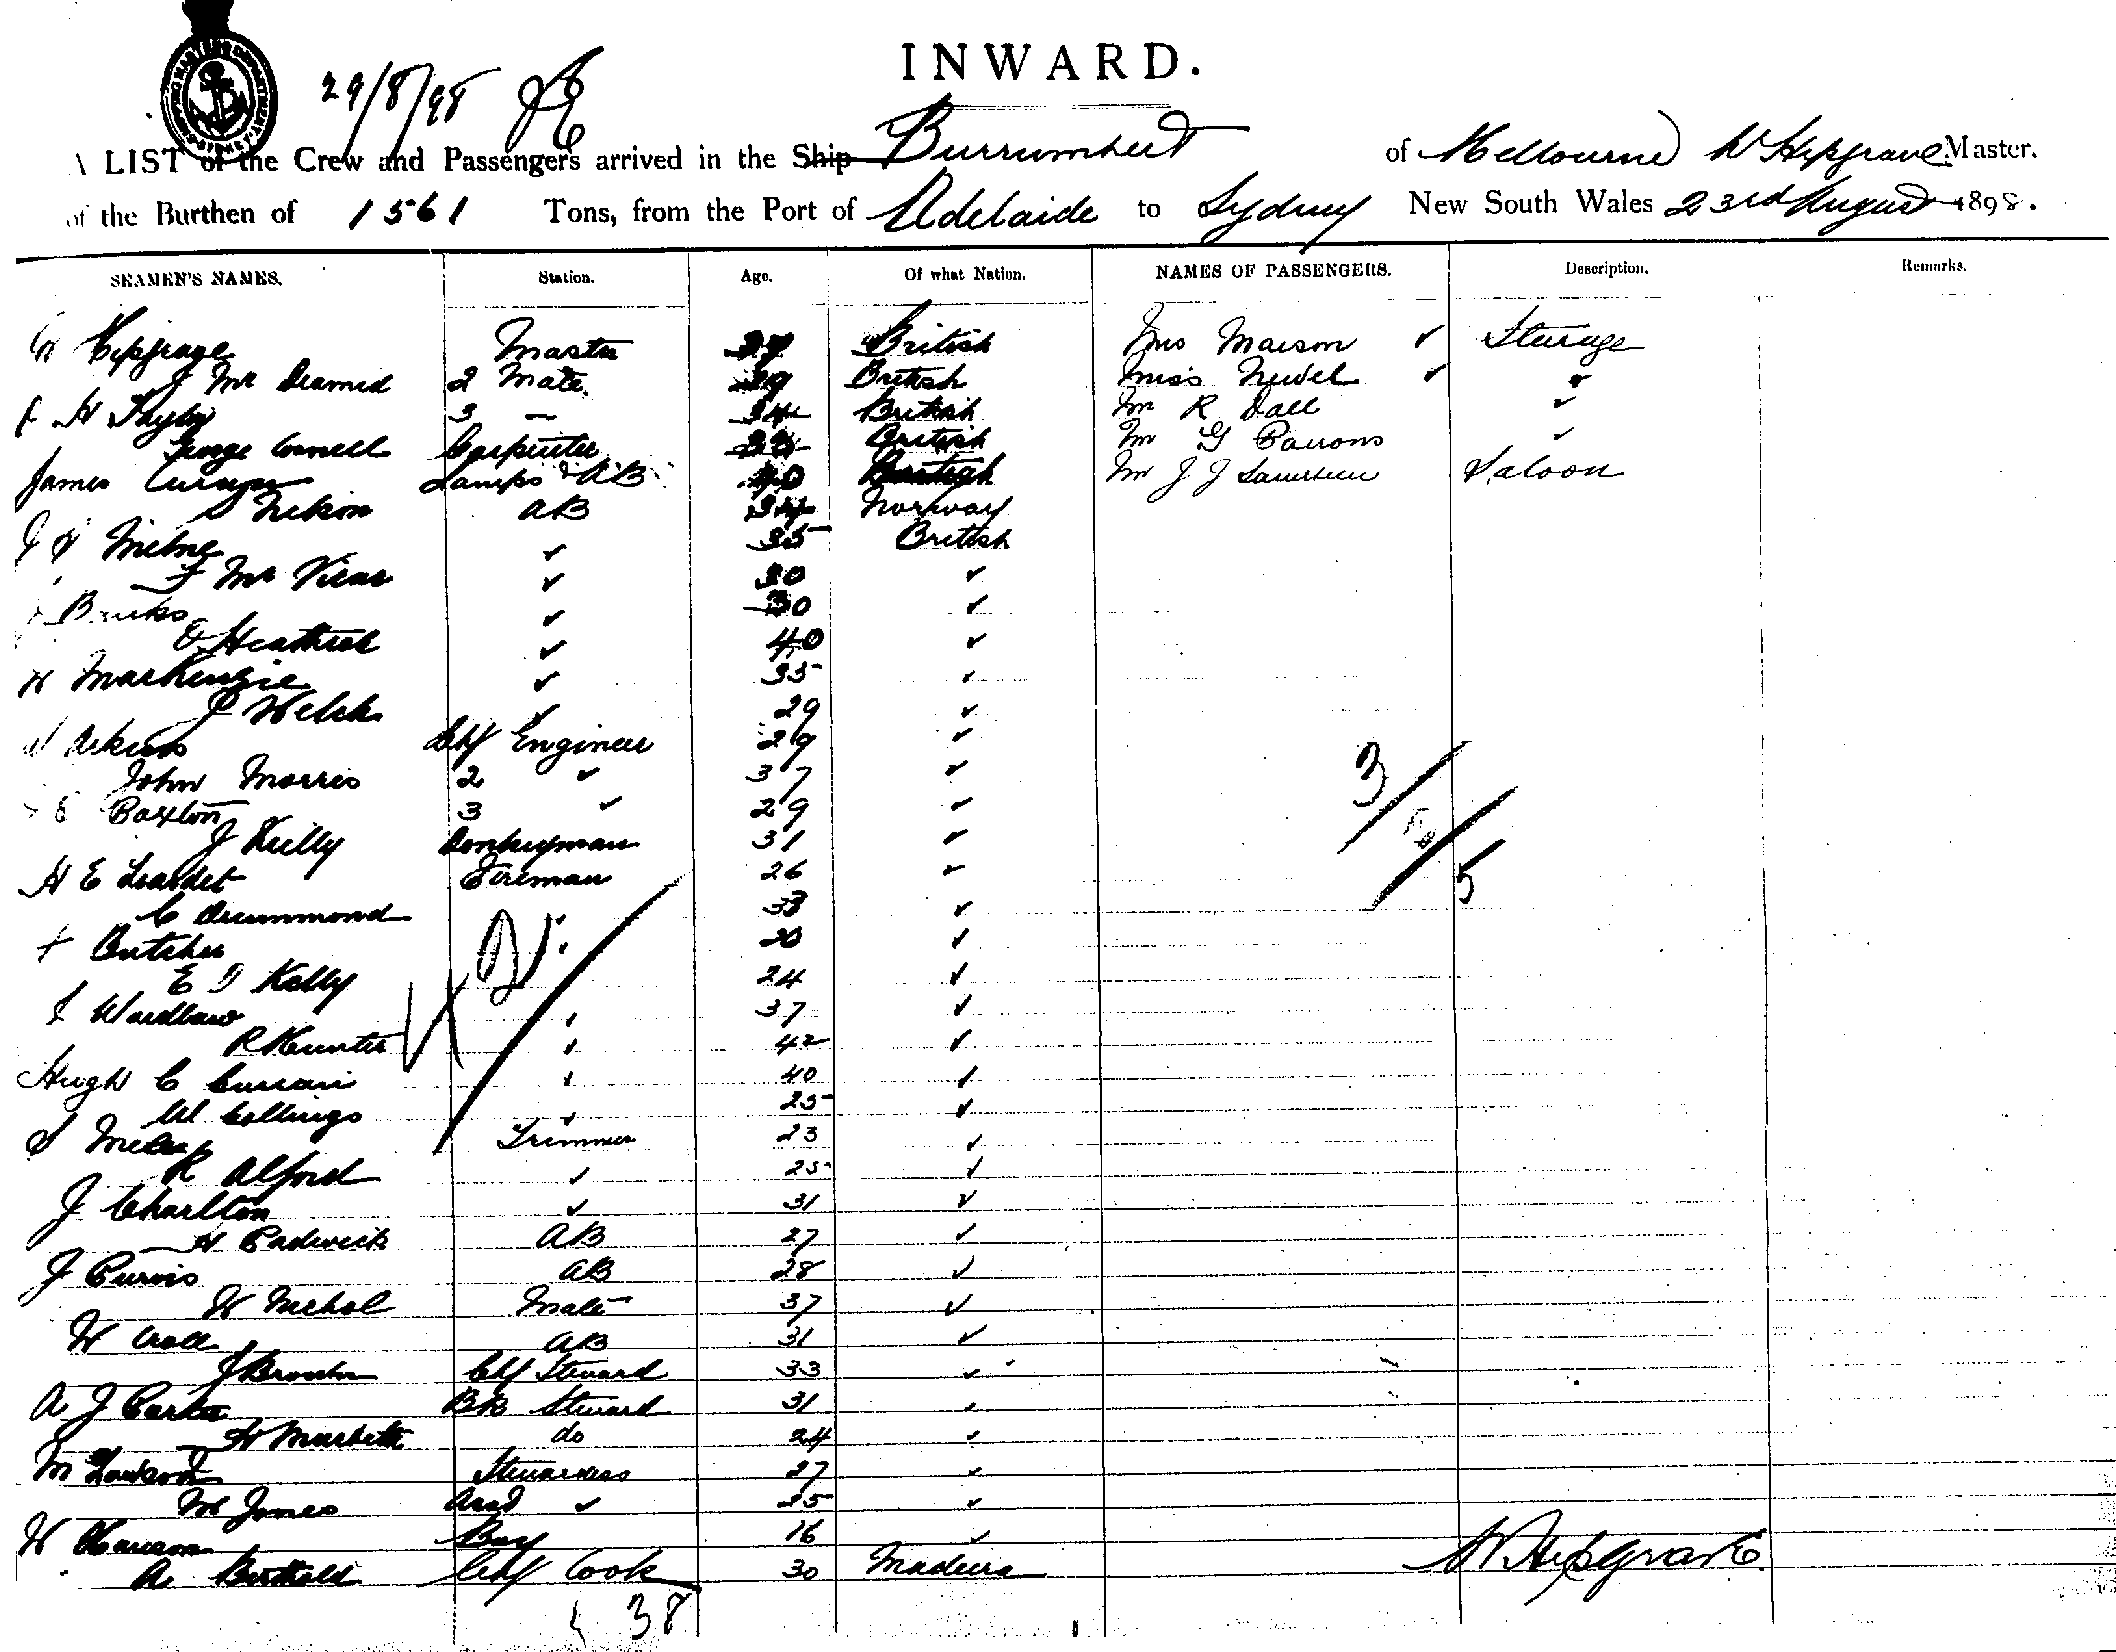 29/8/98
INWARD.
LIST of the Crew and Passengers arrived in the Ship Burrumbeet of Melbourne W Hepgrave Master.
of the Burthen of 1561 Tons, from the Port of Adelaide to Sydney New South Wales 23rd August 1898.
SEAMEN'S NAMES. Station. Age. Of what Nation. NAMES OF PASSENGERS. Description. Remarks.
Hepgrave Master British Maison ✓ Steerage
2 Mate 29 British Miss ✓ "
H Taylor 3 – 34 British Mr R Dall "
George Connell Carpenter British Mr G Parsons "
James Lamps & AB 40 British Mr J J Saloon
AB 34 Norway
Milne " 35 British
F " 30 "
" 30 "
" 40 "
MacKenzie " 35 "
J Welch " 29 "
Chf Engineer 29 "
John Morris 2 " 37 "
Baxton 3 " 29 "
J Kelly Donkeyman 31 "
H E Liardet Fireman 26 "
C Drummond " 33 "
Butcher " 20 "
E J Kelly 24 "
Wardlaw " 37 "
R Hunter " 42 "
Hugh C Curran " 40 "
W Collings " 25 "
Trimmer 23 "
R Alford " 25 "
J Charlton " 31 "
H Padwick AB 27 "
J Purvis AB 28 "
W Nichol Mate 37 "
W Croll AB 31 "
J Chf Steward 33 "
A J Carter BB Steward 31 "
do 24 "
M Stewardess 27 "
M Jones " 25 "
W Boy 16 "
A Berthold Chf Cook 30 Madeira
3
5
W Hepgrave
38